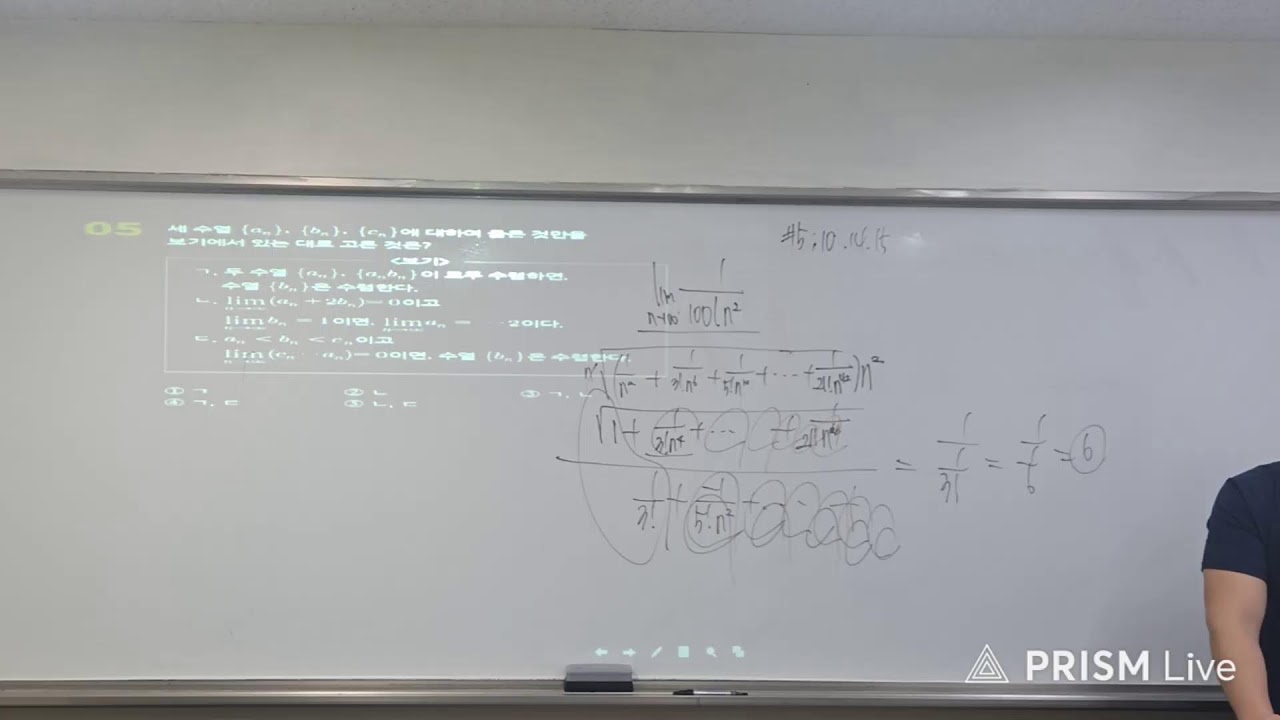 05 세 수열 {aₙ}, {bₙ}, {cₙ}에 대하여 옳은 것만을
보기에서 있는 대로 고른 것은?
<보기>
ㄱ. 두 수열 {aₙ}, {aₙbₙ}이 모두 수렴하면,
수열 {bₙ}은 수렴한다.
ㄴ. lim(aₙ + 2bₙ)=0이고
lim bₙ = 1이면, lim aₙ = -2이다.
ㄷ. aₙ < bₙ < cₙ이고
lim(cₙ - aₙ)=0이면, 수열 {bₙ}은 수렴한다.
① ㄱ ② ㄴ ③ ㄱ, ㄴ
④ ㄱ, ㄷ ⑤ ㄴ, ㄷ
#5, 10, 14, 15
lim n→∞ 1/
√(1/n² + 1/3!n⁶ + 1/5!n¹⁰ + ⋯ + 1/21!n⁴²)n²
√1 + 1/3!n⁴ + ⋯ +
1/3! + 1/5!n² +
= 1/(1/3!) = 1/(1/6) = 6
PRISM Live